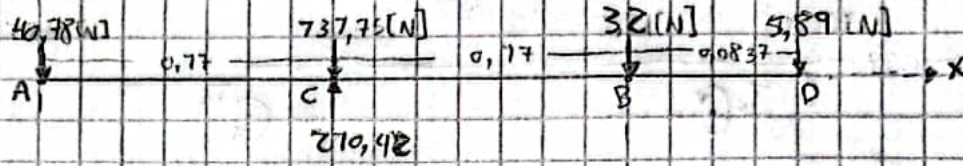 40,78[N] 737,75[N] 32[N] 5,89 [N]
0,77 0,17 0,0837
A C B D X
270,42